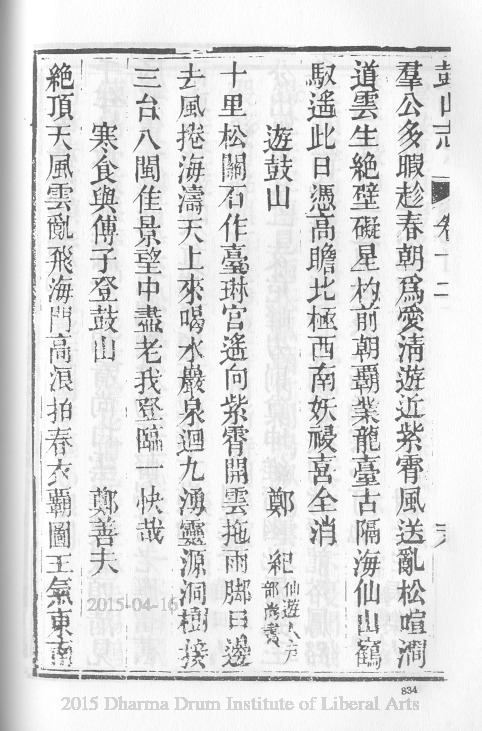 鼓山志 卷十二
羣公多暇趁春朝爲愛清遊近紫霄風送亂松喧澗
道雲生絶壁礙星杓前朝霸業龍臺古隔海仙山鶴
馭遥此日憑高瞻北極西南妖祲喜全消
遊鼓山 鄭 紀 仙遊人 部尚書
十里松關石作臺琳宮遥向紫霄開雲拖雨脚日邊
去風捲海濤天上來喝水巖泉迴九湧靈源洞樹接
三台八閩佳景望中盡老我登臨一快哉
寒食與傅子登鼓山 鄭善夫
絶頂天風雲亂飛海門高浪拍春衣霸圖王氣東南
2015-04-16
834
2015 Dharma Drum Institute of Liberal Arts